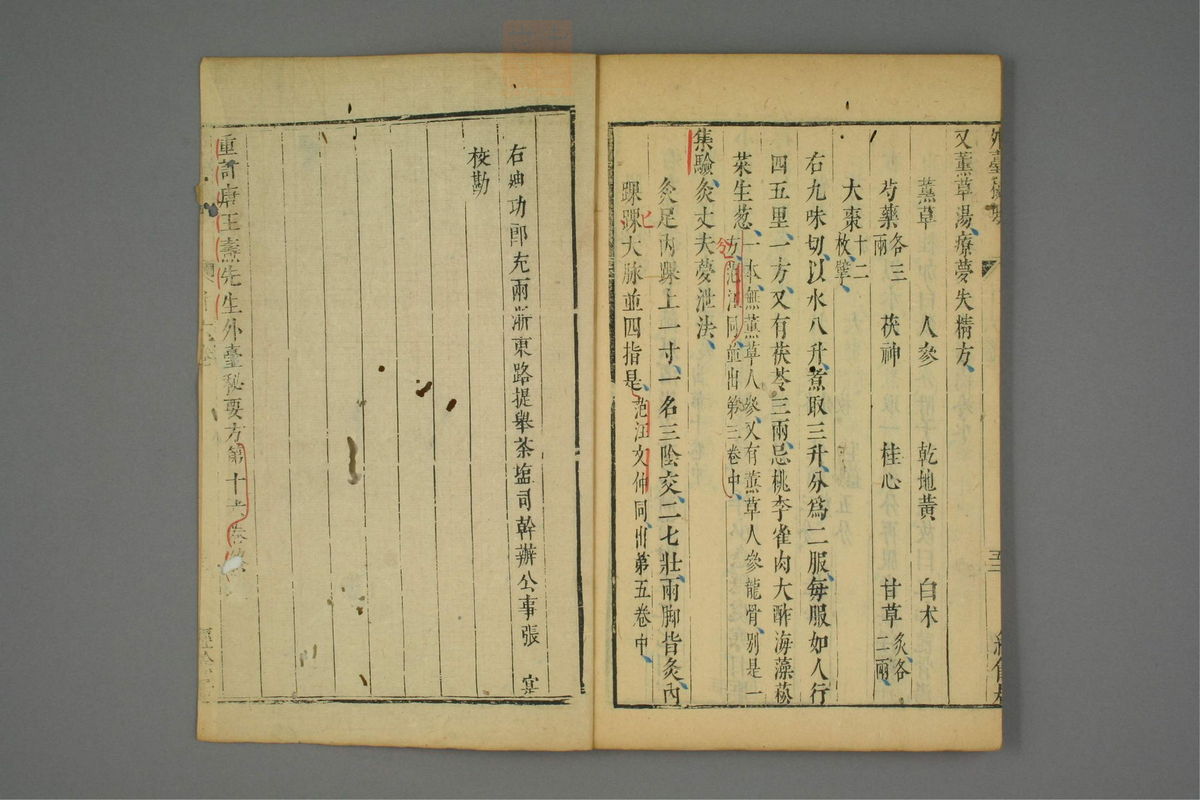 又薰草湯療夢失精方
薰草 人參 乾地黃 白术
芍藥各三兩 茯神 桂心 甘草炙各二兩
大棗十二枚擘
右九味切以水八升煮取三升分爲二服每服如人行
四五里一方又有茯苓三兩忌桃李雀肉大酢海藻菘
菜生葱一本無薰草人參又有薰草人參龍骨別是一方范汪同並出第三卷中
集驗灸丈夫夢泄法
灸足內踝上一寸一名三陰交二七壯兩脚皆灸內
踝踝大脉並四指是范汪文仲同出第五卷中
右迪功郎充兩浙東路提舉茶塩司幹辦公事張 寔
校勘
重訂唐王燾先生外臺秘要方第十六卷